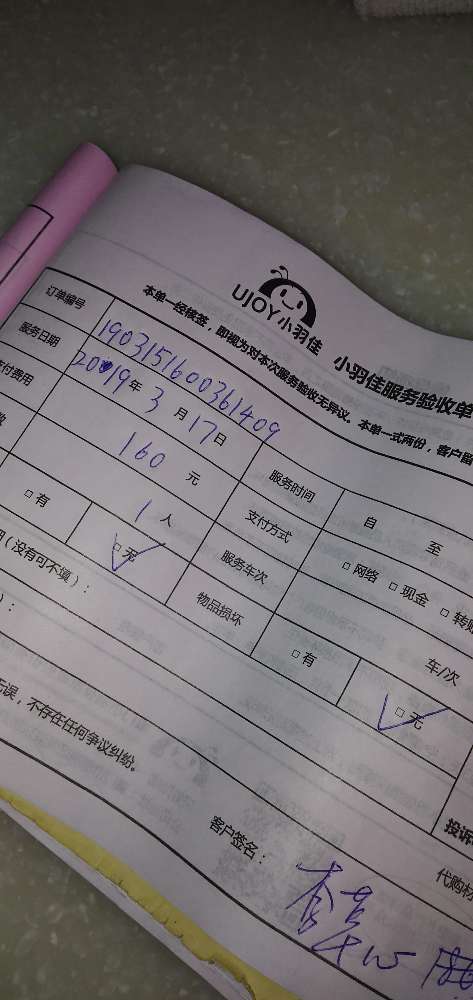 UJOY小羽佳
小羽佳服务验收单
本单一经核签，即视为对本次服务验收无异议。本单一式两份，客户留
订单编号 1903151600361409
服务日期 2019年3月17日 服务时间 自 至
支付费用 160元 支付方式 □网络 □现金 □转账
数 1人 服务车次 车/次
□有 □无 物品损坏 □有 □无
（没有可不填）：
）：
无误，不存在任何争议纠纷。
投诉
代购材
客户签名：